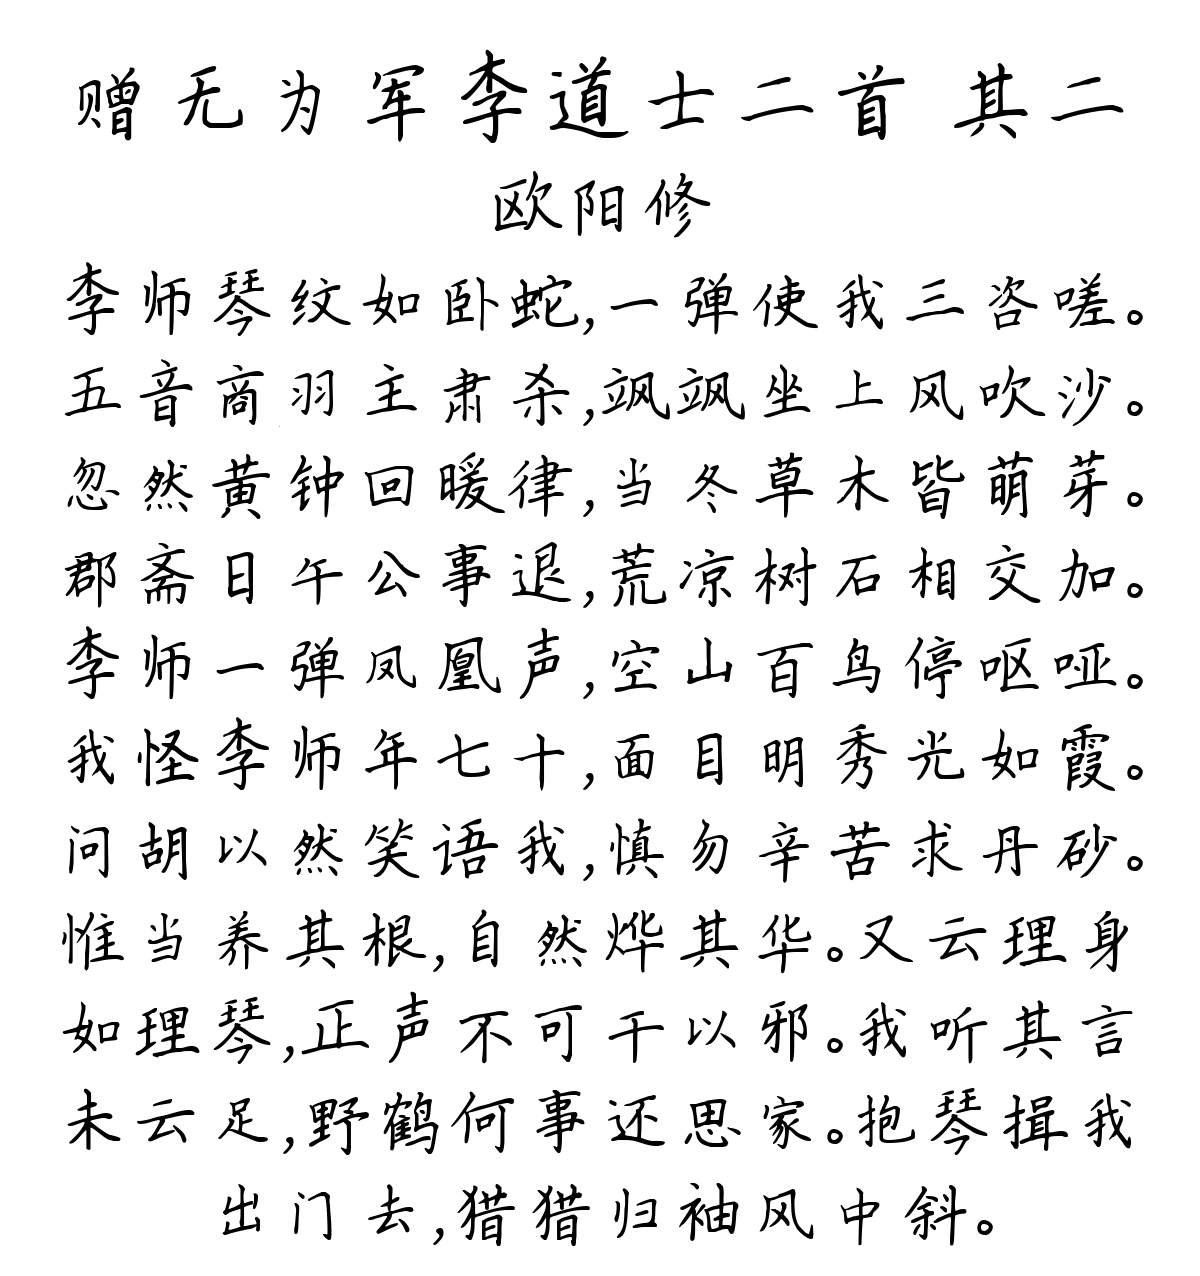 赠无为军李道士二首 其二
欧阳修
李师琴纹如卧蛇,一弹使我三咨嗟。
五音商羽主肃杀,飒飒坐上风吹沙。
忽然黄钟回暖律,当冬草木皆萌芽。
郡斋日午公事退,荒凉树石相交加。
李师一弹凤凰声,空山百鸟停呕哑。
我怪李师年七十,面目明秀光如霞。
问胡以然笑语我,慎勿辛苦求丹砂。
惟当养其根,自然烨其华。又云理身
如理琴,正声不可干以邪。我听其言
未云足,野鹤何事还思家。抱琴揖我
出门去,猎猎归袖风中斜。